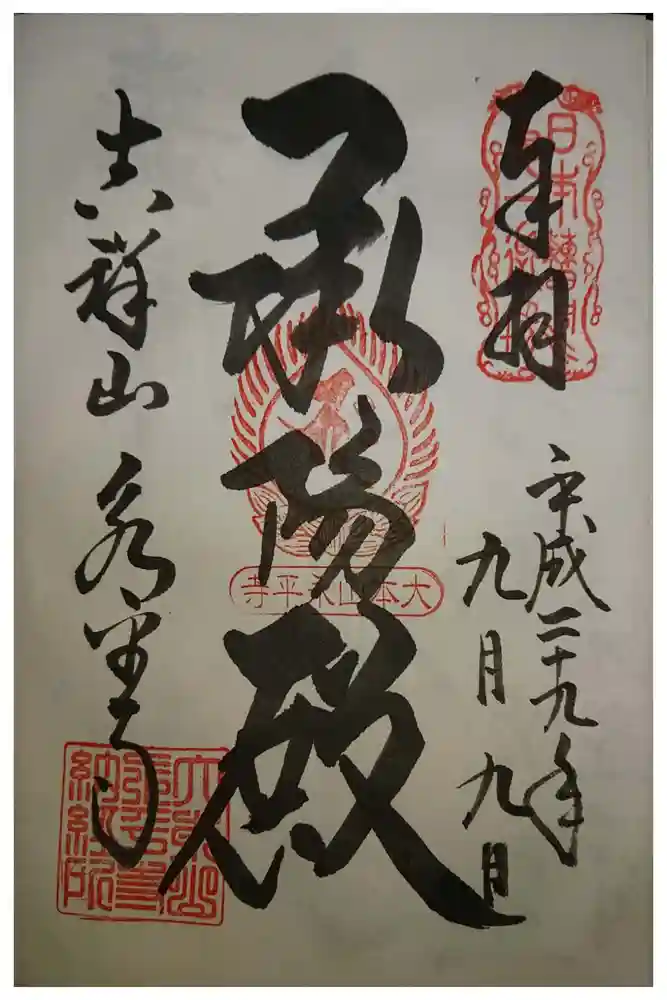 奉拝
日本曹洞
平成二十九年
九月九日
承陽殿
大本山永平寺
吉祥山 永平寺
納經所